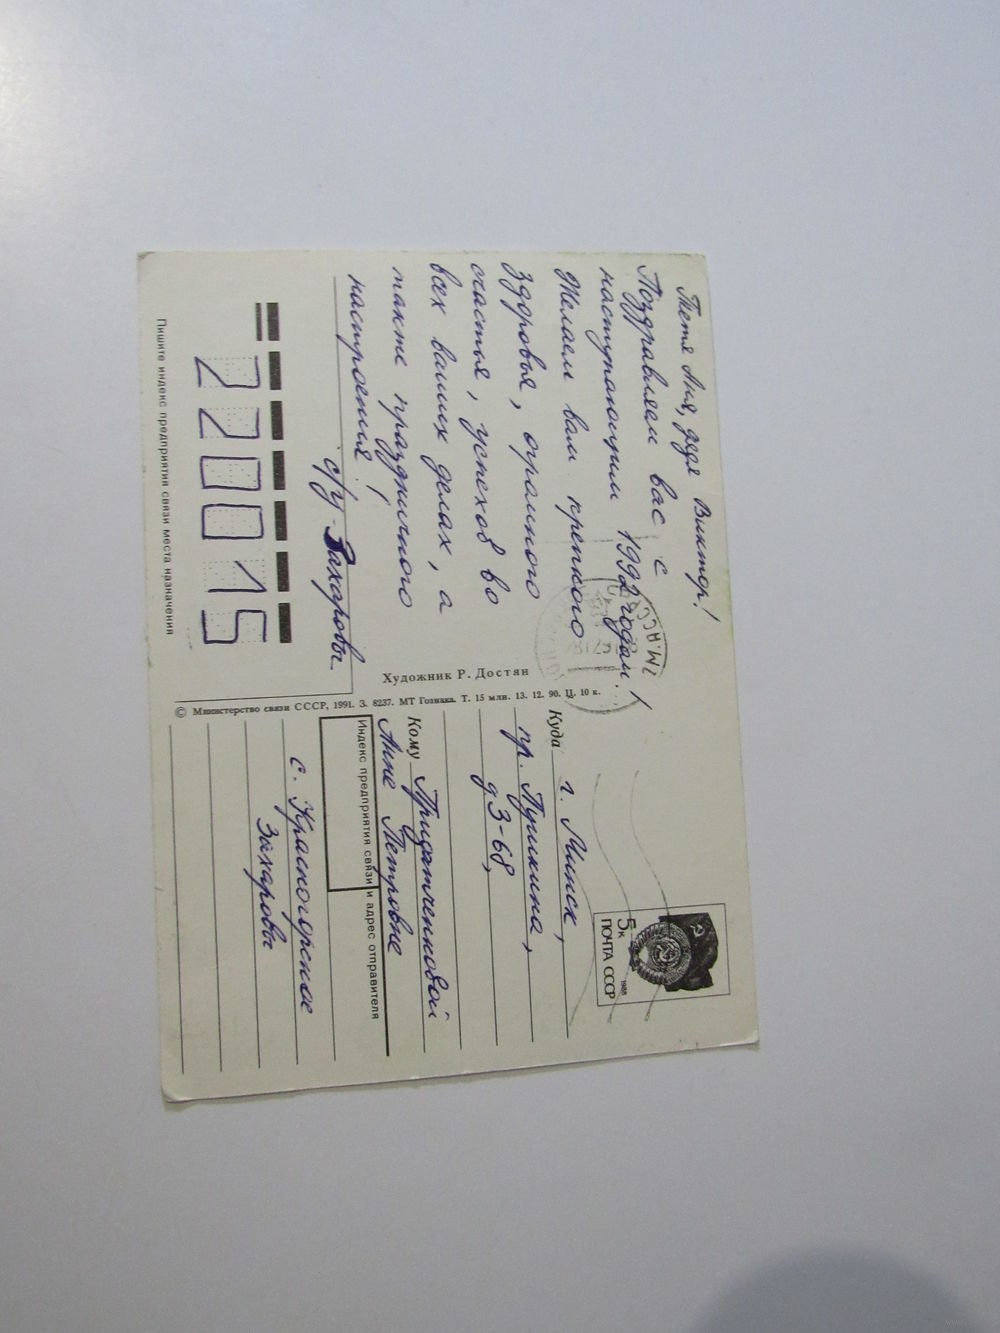 Тетя Аня, дядя Виктор!
Поздравляем вас с
наступающим 1992 годам!
Желаем вам крепкого
здоровья, огромного
счастья, успехов во
всех ваших делах, а
также праздничного
настроения!
с/у - Захаровы
220015
Пишите индекс предприятия связи места назначения
Художник Р. Достян
© Министерство связи СССР, 1991. З. 8237. МТ Гознака. Т. 15 млн. 13. 12. 90. Ц. 10 к.
5к
1988
ПОЧТА СССР
Куда г. Минск,
пр. Пушкина,
д 3-68,
Кому Придатченковой
Анне Петровне
Индекс предприятия связи и адрес отправителя
с. Красногорское
Захаровы